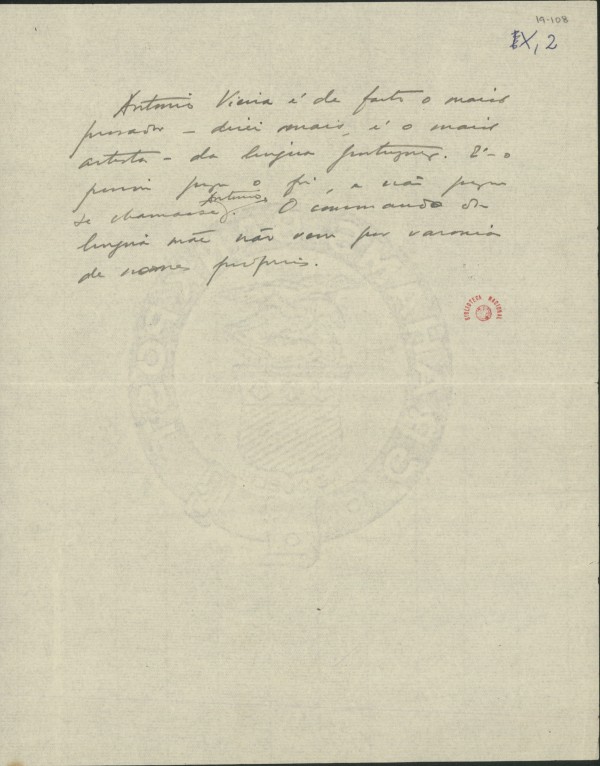 19-108
IX, 2
Antonio Vieira é de facto o maior
prosador – direi mais, é o maior
artista – da lingua portugueza. E-o
porque o foi, e não porque
se chamasse Antonio. O commando da
lingua mãe não vem por varonia
de nomes proprios.
BIBLIOTECA NACIONAL